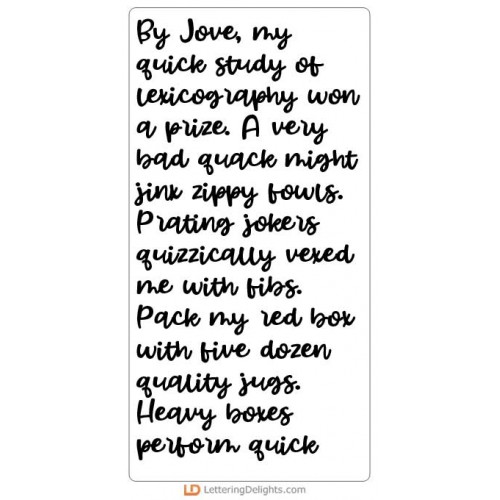 By Jove, my
quick study of
lexicography won
a prize. A very
bad quack might
jinx zippy fowls.
Prating jokers
quizzically vexed
me with fibs.
Pack my red box
with five dozen
quality jugs.
Heavy boxes
perform quick
LD LetteringDelights.com